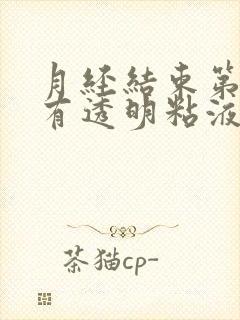 月经结束第
有透明粘液
茶猫cp-